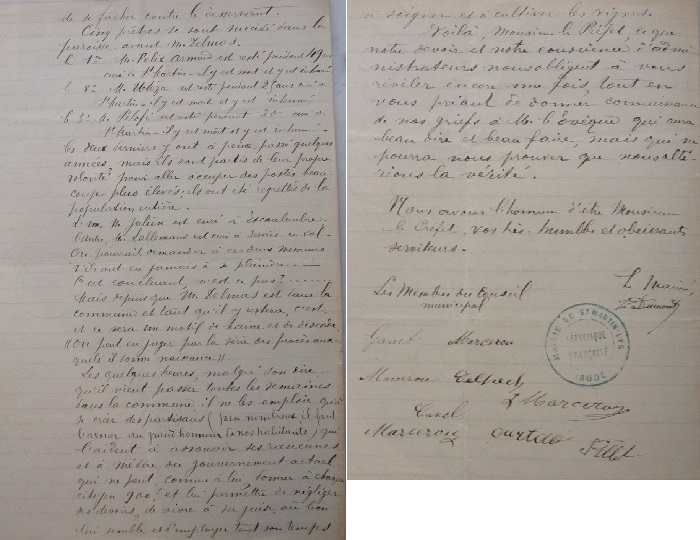 de se fâcher contre le desservant.
Cinq prêtres se sont succédé dans la
paroisse avant M. Delmas.
le 1er M. Felix Armand est resté pendant 49 ans
curé à St Martin - il y est mort et y est inhumé
le 2e M. est resté pendant 25 ans curé à
St Martin - il y est mort et y est inhumé
le 3e M. est resté pendant curé à
St Martin - il y est mort et y est inhumé -
les deux derniers y ont à peine passé quelques
années, mais ils sont partis de leur propre
volonté pour aller occuper des postes beau-
coup plus élevés; ils ont été regrettés de la
population entière.
L'un, M. Julien est curé à Escouloubre
l'autre, M. Lallemans est curé à
On pourrait demander à ces deux messieurs
s'ils ont eu jamais à se plaindre
C'est concluant, n'est ce pas?
Mais depuis que M. Delmas est dans la
commune et tant qu'il y restera, c'est
et ce sera son motif de haine et de désordre
(On peut en juger par la série des procès aux
quels il donne naissance)
Les quelques heures, malgré son dire
qu'il vient passer toutes les semaines
dans la commune il ne les emploie qu'à
se créer des partisans (peu nombreux, il faut
l'avouer au grand honneur de nos habitants) qui
l'aident à assouvir ses rancunes
et à médire du gouvernement actuel
qui ne peut, comme à lui, donner à chaque
citoyen 900f et lui permettre de négliger
ses devoirs, de vivre à sa guise, où bon
lui semble et d'employer tout son temps
à soigner et à cultiver les vignes.
Voilà, Monsieur le Préfet, ce que
notre devoir et notre conscience d'admi
nistrateurs nous obligent à vous
révéler encore une fois, tout en
vous priant de donner connaissance
de nos griefs à Mr l'Evêque qui aura
beau dire et beau faire, mais qui ne
pourra nous prouver que nous alté-
rions la vérité.
Nous avons l'honneur d'être Monsieur
le Préfet, vos très humbles et obéissants
serviteurs.
Les Membres du Conseil
municipal
Le Maire
Marcerou
MAIRIE DE ST MARTIN LYS
RÉPUBLIQUE
FRANÇAISE
(AUDE)
Marcerou Delpech
J Marcerou
Canal
Marcerou
Pillet